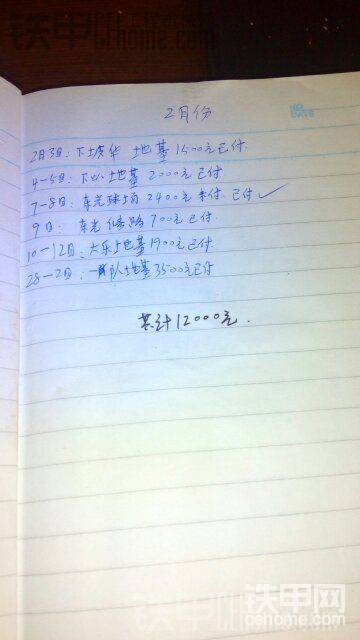 铁甲网
cehome.com
2月份
NO.
DATE
2月3日：下坡华 地基1500元已付
4-5日：下心土地基2000元已付
7-8日：东光球场2400元未付 已付✓
9日：东光修路700元已付
10-12日：大乐土地基1900元已付
28-2日：一队土地基3500元已付
共计12000元.
铁甲网
cehome.com